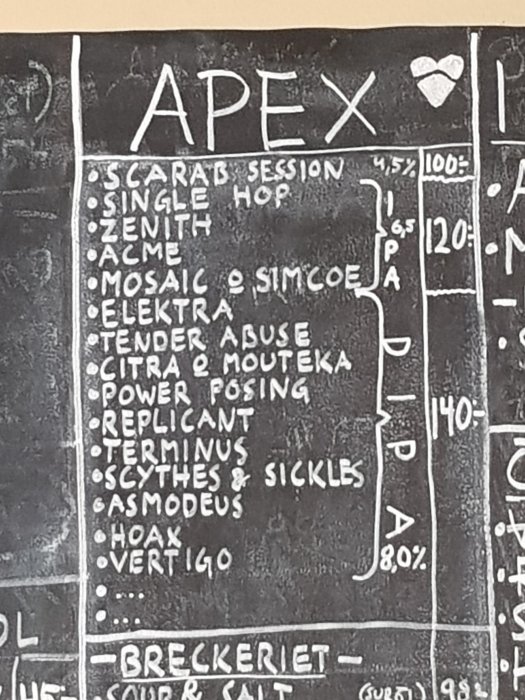 APEX
• SCARAB SESSION 4,5% 100:-
• SINGLE HOP
• ZENITH
• ACME
• MOSAIC & SIMCOE
IPA 6,5 120:-
• ELEKTRA
• TENDER ABUSE
• CITRA & MOUTEKA
• POWER POSING
• REPLICANT
• TERMINUS
• SCYTHES & SICKLES
• ASMODEUS
• HOAX
• VERTIGO
DIPA 8,0% 140:-
• ...
• ...
- BRECKERIET -
• SOUR & SALT